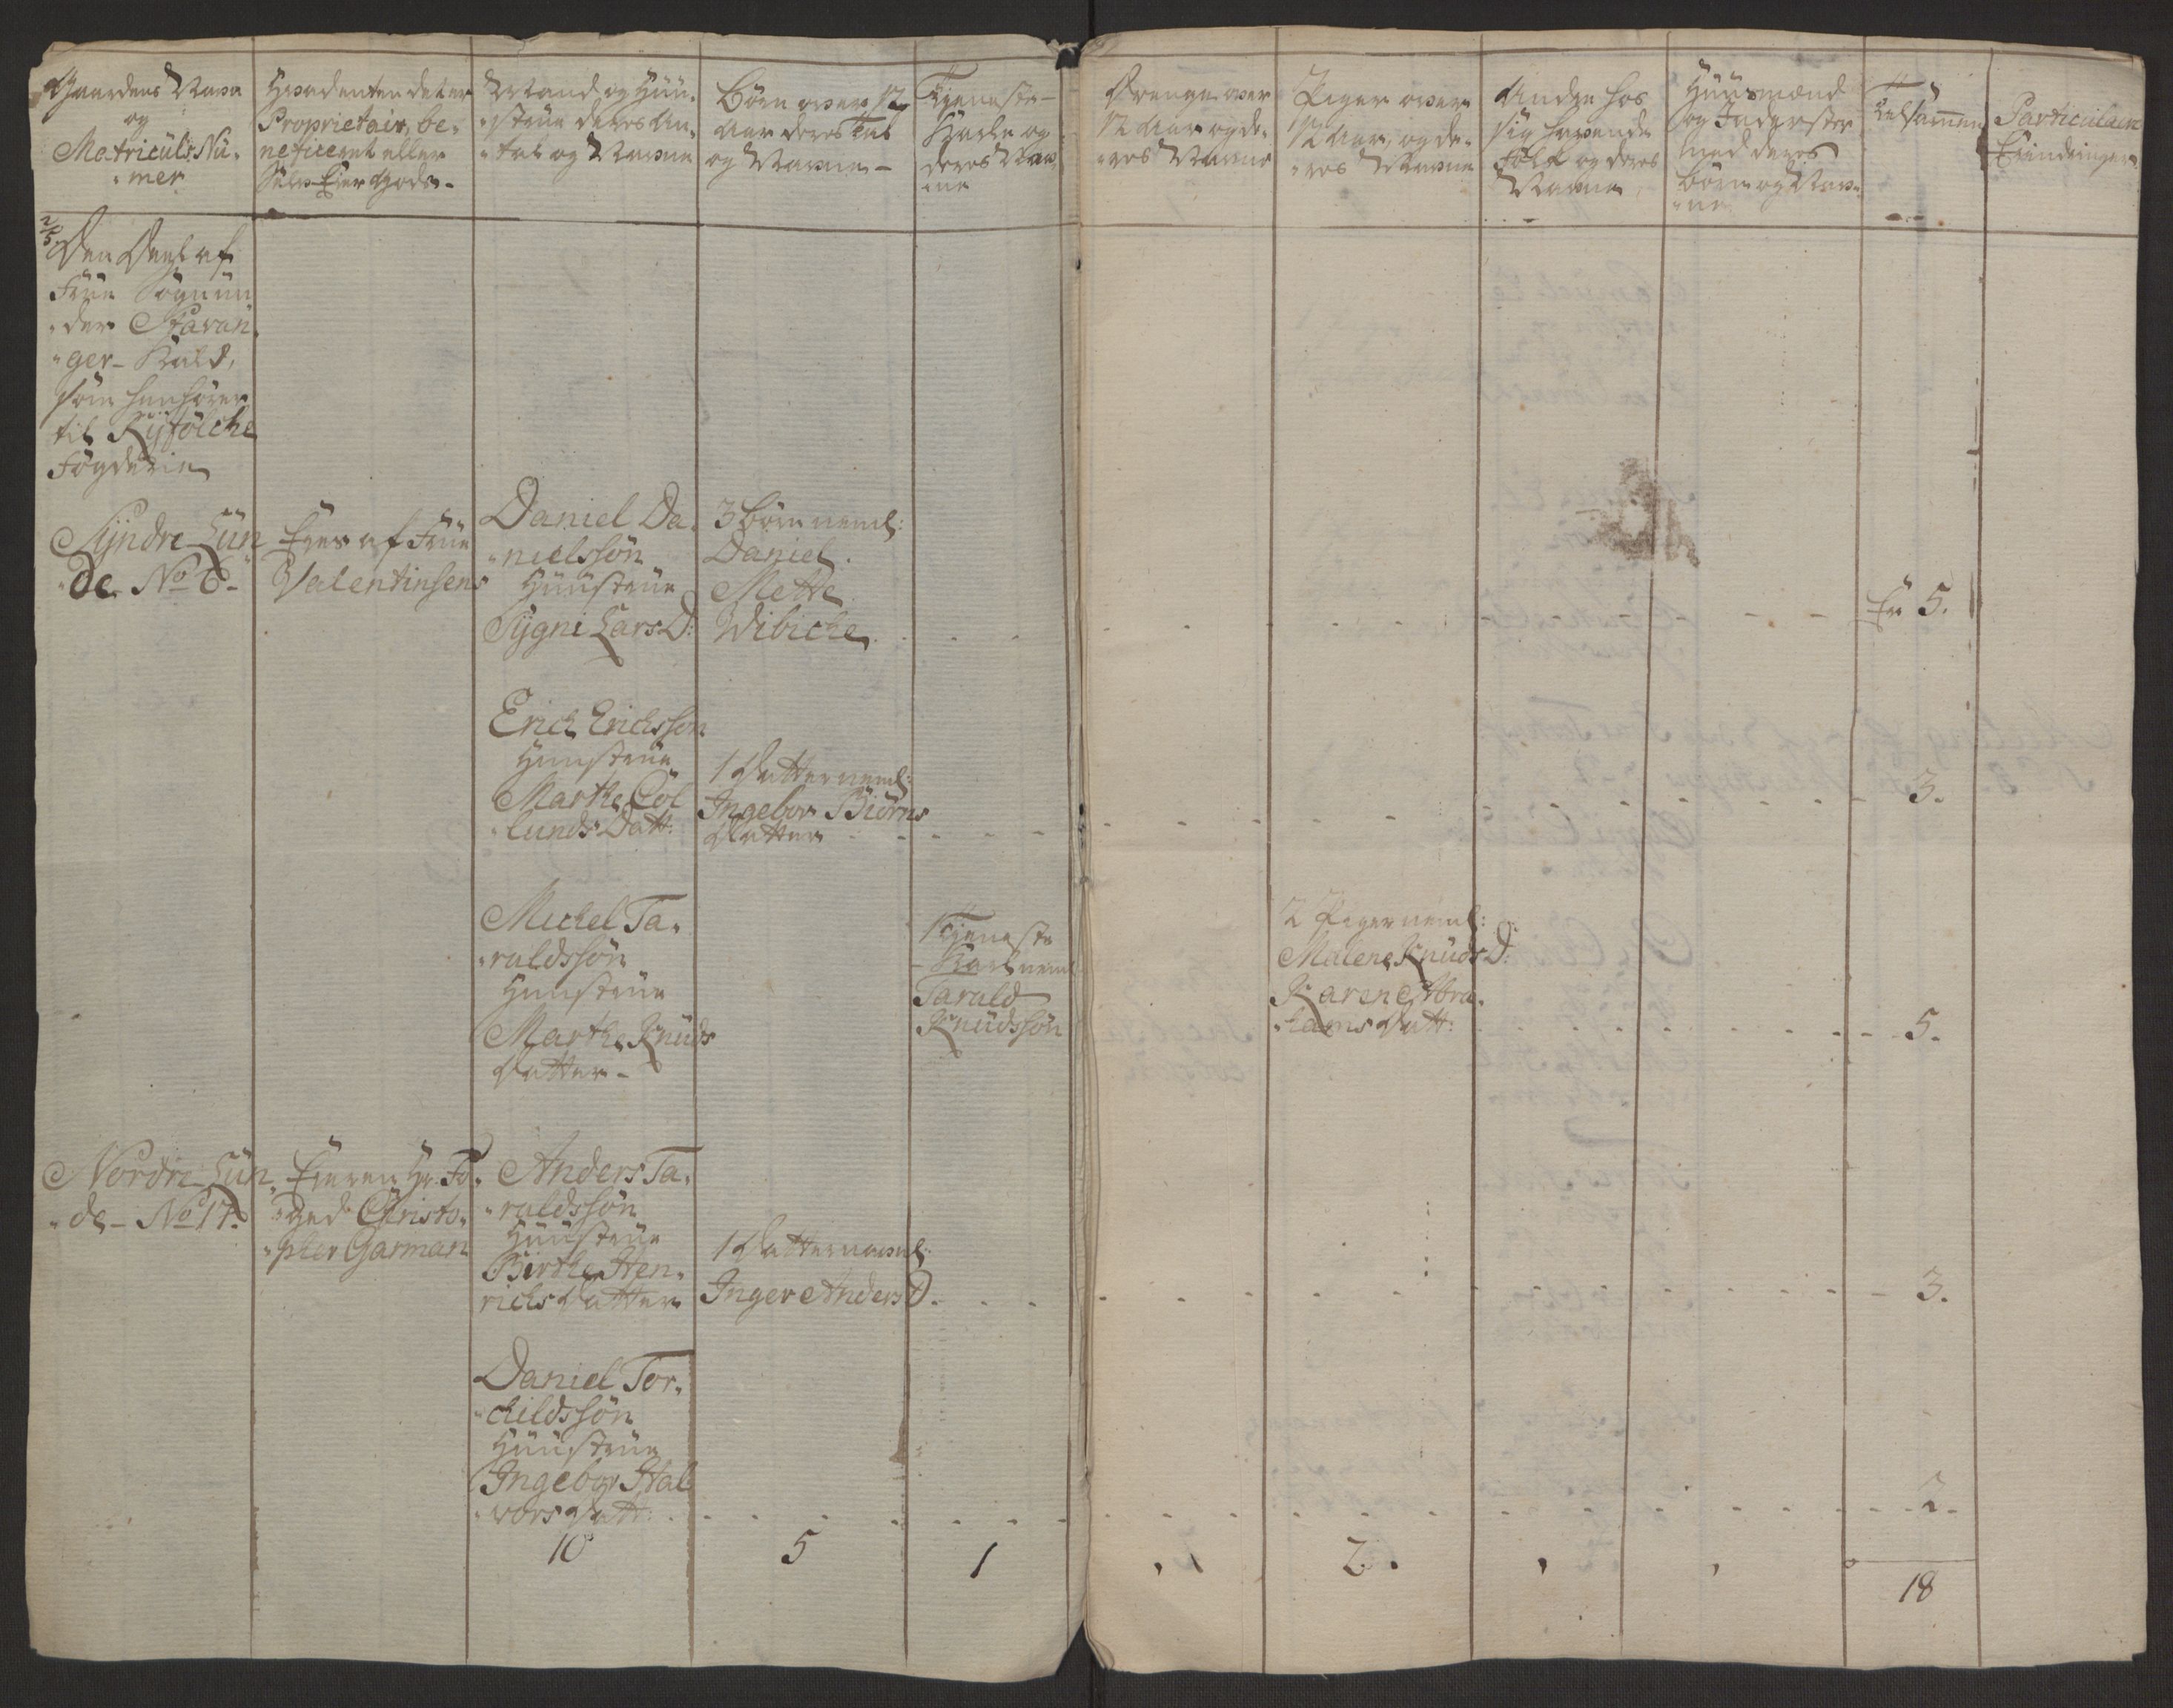 Gaardens Navn
og
Matriculs Nu-
mer
Hvadenten det er
Proprietair, be-
neficeret eller
Selv Eier Gods-
Mand og Huu-
strue deres An-
tal og Navne
Børn over 12
Aar deres Tal
og Navne-
Tjeneste-
Karle og
deres Nav-
ne
Drenge over
12 Aar og de-
res Navne
Piger over
12 Aar, og de-
res Navne
Andre hos
sig havende
Folk og deres
Navne
Huusmænd
og Inderster
med deres
Børn og Nav-
ne
Tilsammen
Particulair
Erindringer
2/5
Den Deel af
Frue Sogn un-
der Stavan-
ger- Kald,
som henhører
til Ryfølche
Fogderie
Syndre Lun-
de No 6-
Eies af Frue
Valentinsens
Daniel Da-
nielssøn
Huustrue
Sygni Lars D:
3 Børn neml:
Daniel
Mette
Wibicke
Er 5.
Erich Erichssøn
Huustrue
Marthe Col-
lunds Datt:
1 Datter neml:
Ingebor Biørns
Datter
3.
Michel Ta-
raldssøn
Huustrue
Marthe Knuds
Datter-
1 Tjeneste
Karl neml
Tarald
Knudssøn
2 Piger neml:
Malene Knuds D:
Karen Abra-
hams Datt:
5.
Nordre Lun-
de- No 17.
Eieren Hr: Fo-
ged Christo-
pher Garman
Anders Ta-
raldssøn
Huustrue
Birthe Hen-
richs Datter
1 Datter navnl:
Inger Anders D.
3.
Daniel Tor-
childssøn
Huustrue
Ingebor Hal-
vors Datt:
2.
10 5 1 , 2. , , 18